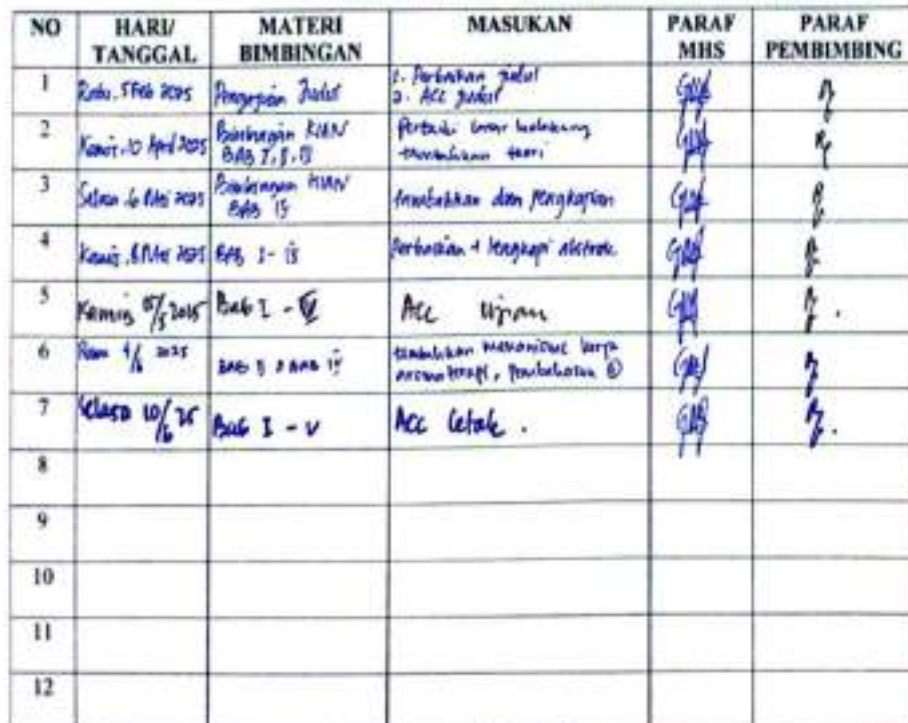 NO HARI/ TANGGAL MATERI BIMBINGAN MASUKAN PARAF MHS PARAF PEMBIMBING
1 Rabu, 5 Feb 2025 Pengajuan Judul 1. Perbaikan judul
2. Acc judul
2 Kamis, 10 April 2025 Bimbingan KIAN Perbaiki latar belakang
BAB I, II, III tambahkan teori
3 Selasa, 6 Mei 2025 Bimbingan KIAN tambahkan dan pengkajian
BAB
4 Kamis, 8 Mei 2025 BAB I - Perbaikan + lengkapi abstrak
5 Kamis 15/5 2025 Bab I - V Acc Ujian
6 2025 BAB BAB tambahkan mekanisme kerja
aromaterapi, pembahasan
7 Selasa 10/6 25 Bab I - V Acc Cetak .
8
9
10
11
12